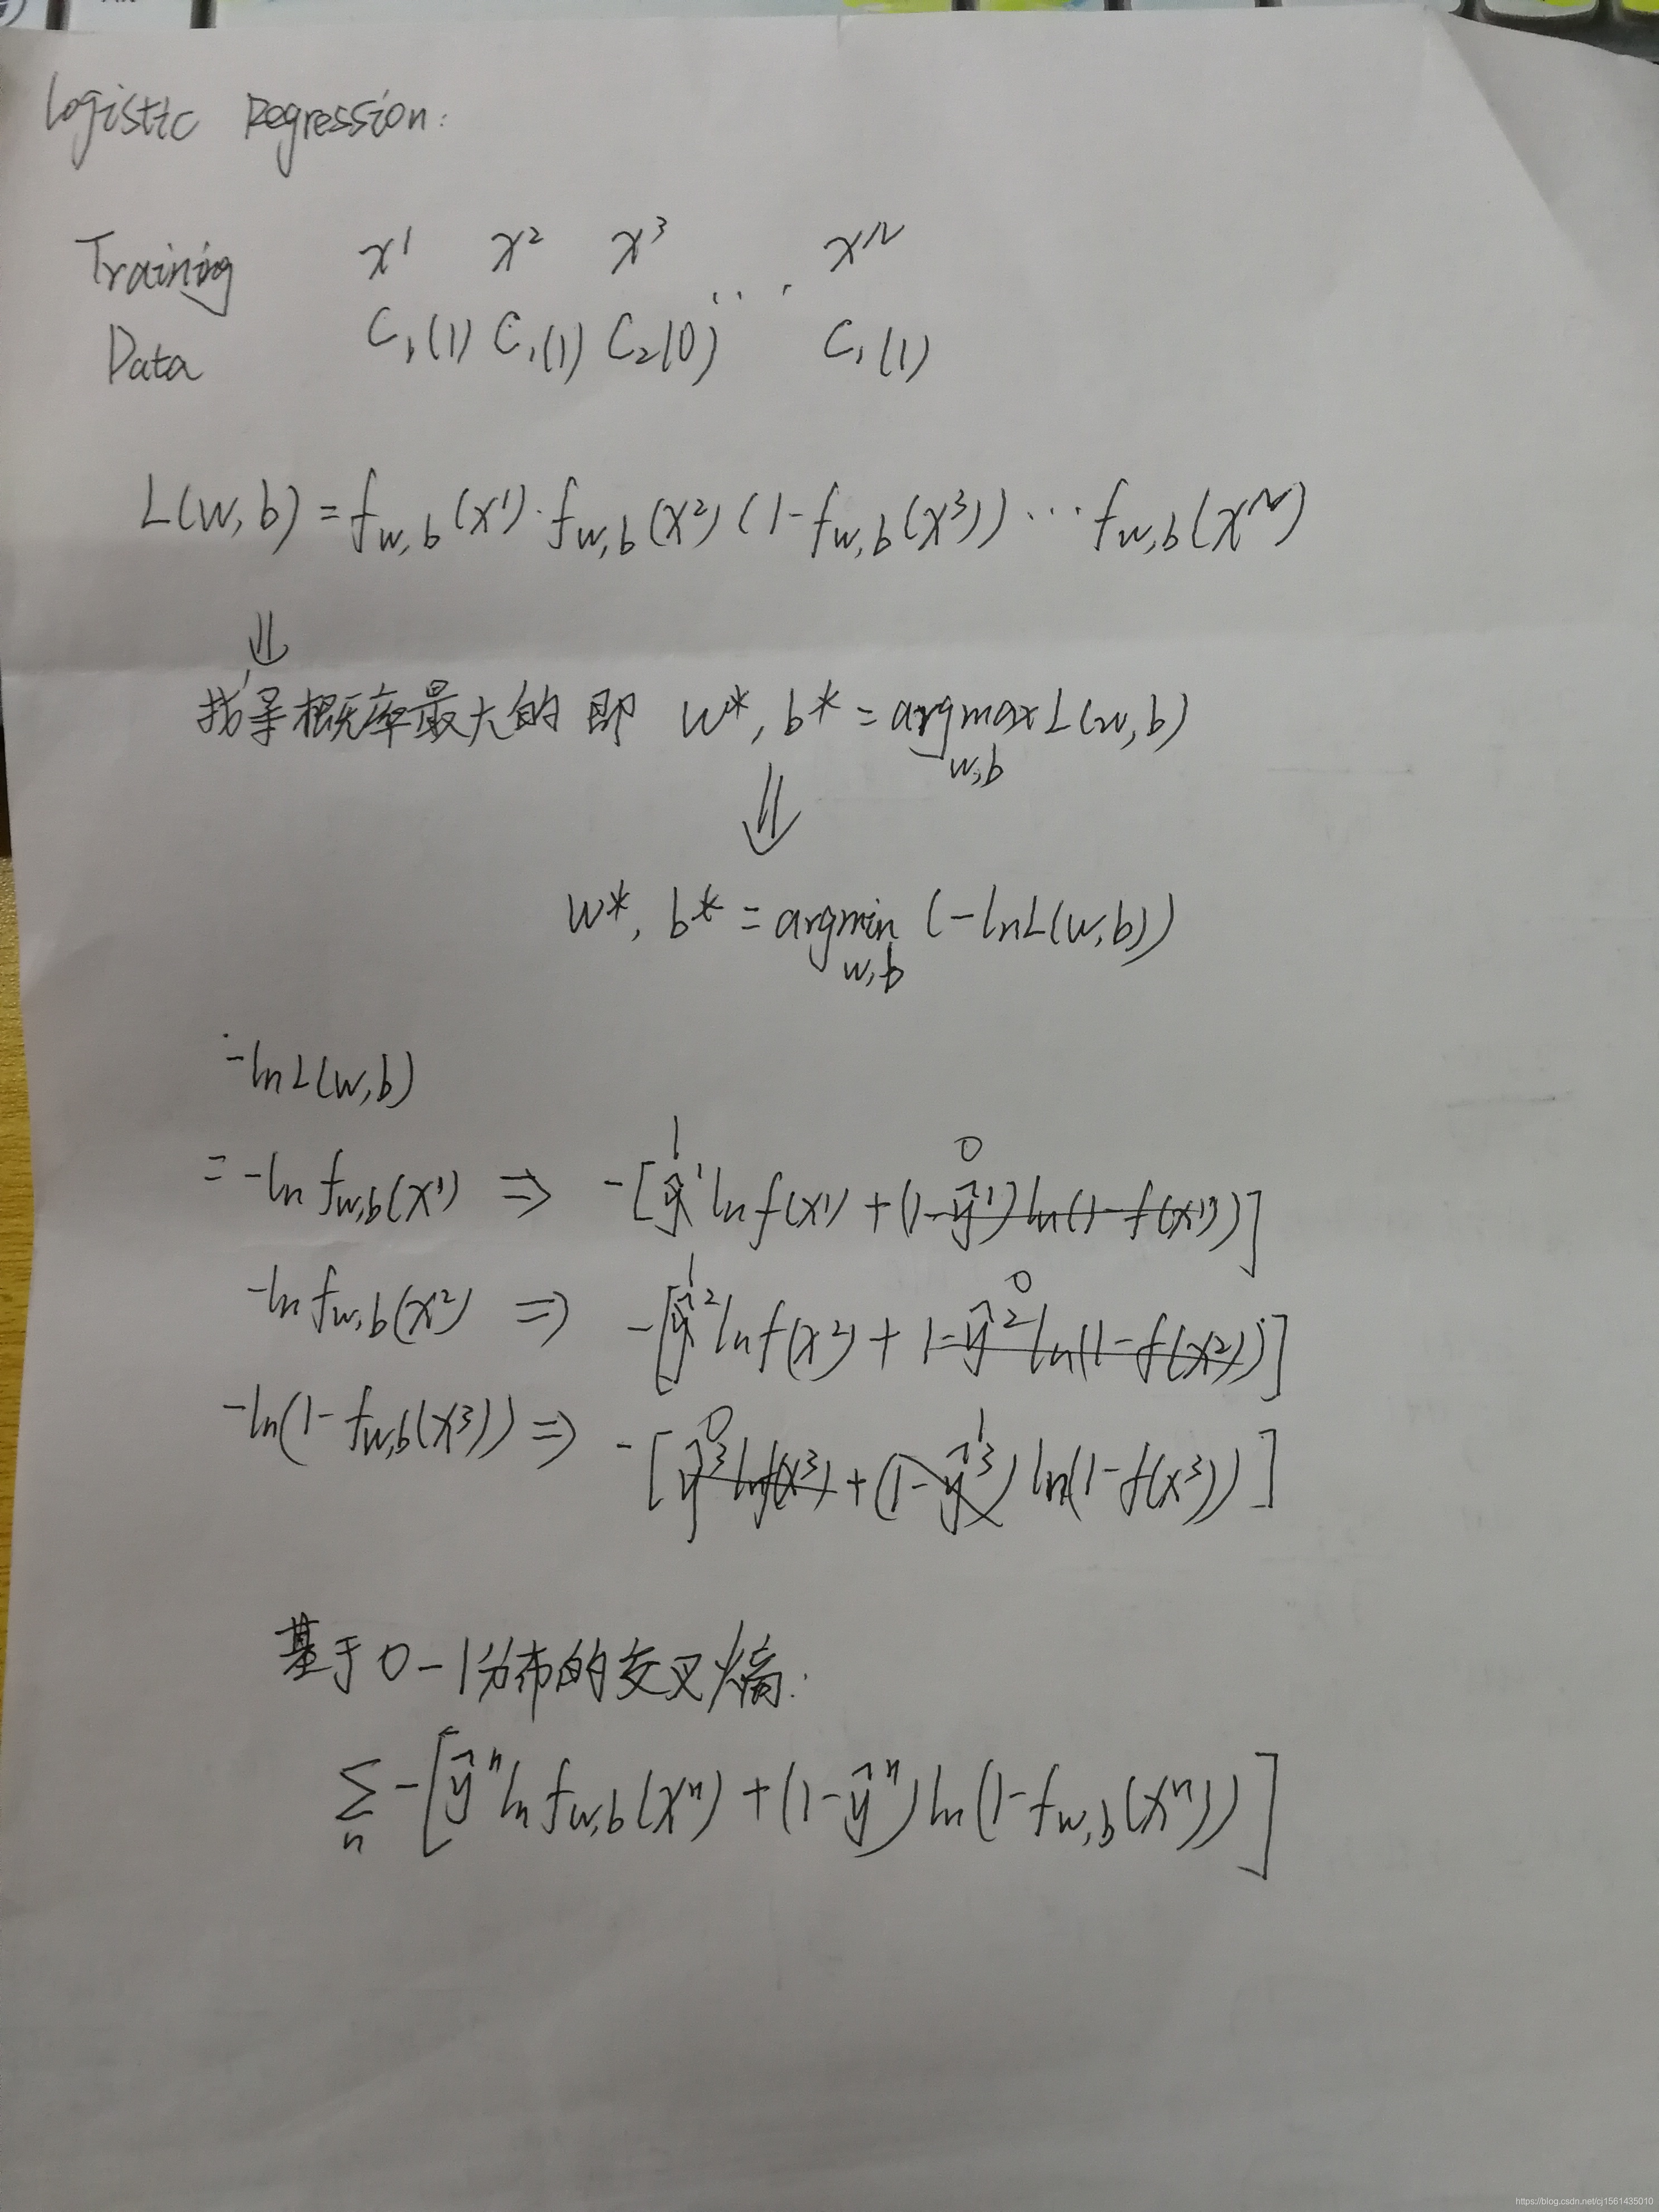 Logistic Regression:
Training x¹ x² x³ xᴺ
Data C₁(1) C₁(1) C₂(0) ... C₁(1)
L(w,b) = f_{w,b}(x¹)·f_{w,b}(x²)(1-f_{w,b}(x³))···f_{w,b}(xᴺ)
⇓
找寻概率最大的 即 w*, b* = argmax_{w,b} L(w,b)
⇓
w*, b* = argmin_{w,b} (-lnL(w,b))
-lnL(w,b)
= -ln f_{w,b}(x¹) ⇒ -[ŷ¹ ln f(x¹) + (1-ŷ¹) ln(1-f(x¹))] 1 0
-ln f_{w,b}(x²) ⇒ -[ŷ² ln f(x²) + 1-ŷ² ln(1-f(x²))] 1 0
-ln(1-f_{w,b}(x³)) ⇒ -[ŷ³ ln f(x³) + (1-ŷ³) ln(1-f(x³))] 0 1
基于0-1分布的交叉熵:
∑_n -[ŷⁿ ln f_{w,b}(xⁿ) + (1-ŷⁿ) ln(1-f_{w,b}(xⁿ))]
https://blog.csdn.net/cj1561435010